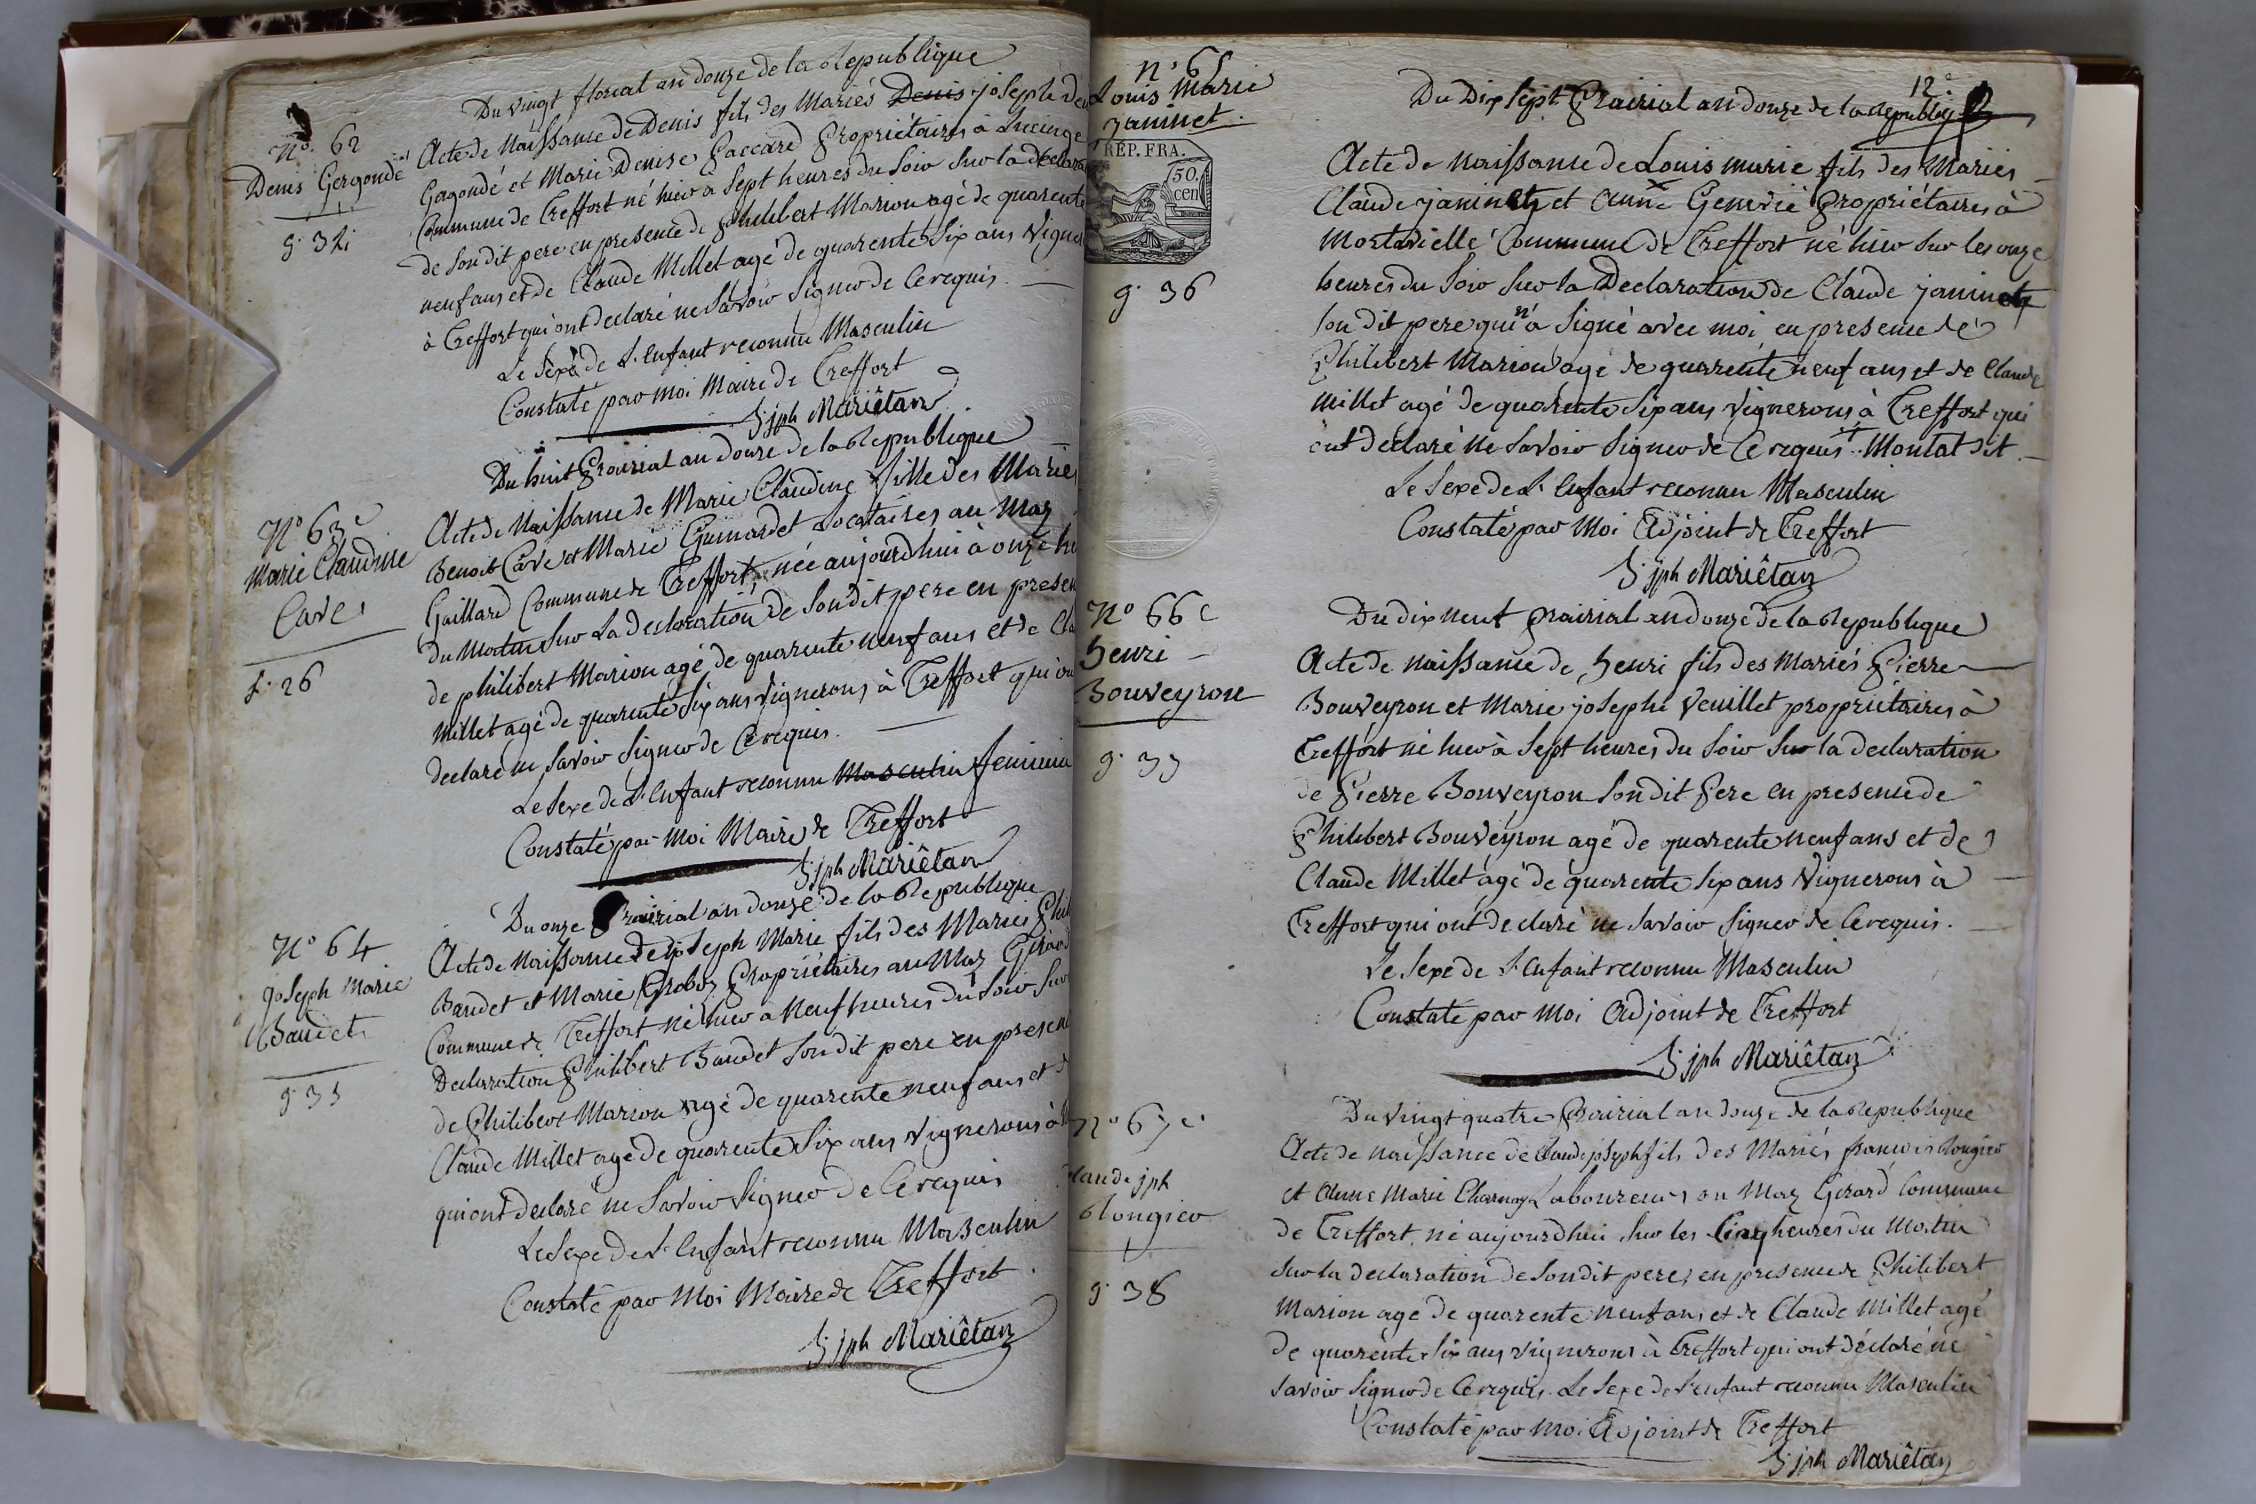 Du vingt floreal an douze de la Republique
N° 62
Denis Gergonde
g. 34
Acte de Naissance de Denis fils des Mariés Denis joseph
Gergondé et Marie Denise Paccard Propriétaires à Lucinge
Commune de Treffort né hier à Sept heures du Soir Sur la declara
de Son dit pere en presence de philibert Marion agé de quarente
neuf ans et de Claude Millet agé de quarente Six ans Vigne
à Treffort qui ont declaré ne Savoir Signer de Ce requis.
Le Sexe de L'enfant reconnu Masculin
Constaté par moi Maire de Treffort
jph Mariêtan
Du huit Prairial an douze de la Republique
N° 63e
Marie Claudine
Cave
f. 26
Acte de Naissance de Marie Claudine fille des Mariés
Benoit Cave et Marie Guinardet Locataires au Maz
Gaillard Commune de Treffort, née aujourdhui à onze he
du Matin Sur La declaration de Son dit pere en presen
de philibert Marion agé de quarente neuf ans et de Cla
Millet agé de quarente Six ans Vignerons à Treffort qui on
declaré ne Savoir Signer de Ce requis.
Le Sexe de L'enfant reconnu Masculin feminin
Constaté par Moi Maire de Treffort
jph Mariêtan
Du onze Prairial an douze de la Republique
N° 64
Joseph Marie
Baudet
g. 35
Acte de Naissance de joseph Marie fils des Mariés Phili
Baudet et Marie Proboz Propriétaires au Maz Girard
Commune de Treffort né hier à Neuf heures du Soir Sur
Declaration Philibert Baudet Son dit pere en presen
de Philibert Marion agé de quarente neuf ans et d
Claude Millet agé de quarente Six ans Vignerons à
qui ont declaré ne Savoir Signer de Ce requis
Le Sexe de L'enfant reconnu Masculin
Constaté par Moi Maire de Treffort
jph Mariêtan
12e
n° 65
Louis Marie
Janinet.
RÉP. FRA.
50
cen
g. 36
Du Dix Sept Prairial an douze de la Republiq
Acte de Naissance de Louis marie fils des Mariés
Claude janinet et Anne Genevié Propriétaires à
Montarielle Commune de Treffort né hier Sur les onze
heures du Soir Sur la Declaration de Claude janinet
Son dit pere qui n'a Signé avec moi en presence de
Philibert Marion agé de quarente neuf ans et de Claude
Millet agé de quarente Six ans Vignerons à Treffort qui
ont declaré ne Savoir Signer de Ce requis. Montat dit
Le Sexe de L'enfant reconnu Masculin
Constaté par Moi Adjoint de Treffort
jph Mariêtan
N° 66e
henri
Bouveyron
g. 37
Du dix neuf prairial an douze de la Republique
Acte de Naissance de henri fils des Mariés Pierre
Bouveyron et Marie josephe Veuillet propriétaires à
Treffort né hier à Sept heures du Soir Sur la declaration
de Pierre Bouveyron Son dit Pere en presence de
Philibert Bouveyron agé de quarente neuf ans et de
Claude Millet agé de quarente Six ans Vignerons à
Treffort qui ont declaré ne Savoir Signer de Ce requis.
Le Sexe de L'enfant reconnu Masculin
Constaté par Moi Adjoint de Treffort
jph Mariêtan
N° 67e
Claude jph
Rongier
g. 38
Du Vingt quatre Prairial an douze de la Republique
Acte de naissance de Claude joseph fils des Mariés francois Rongier
et Anne Marie Charnay Laboureurs au Maz Girard Commune
de Treffort, né aujourdhui Sur les Cinq heures du Matin
Sur la declaration de Son dit pere, en presence de Philibert
Marion agé de quarente neuf ans et de Claude Millet agé
de quarente Six ans Vignerons à Treffort qui ont declaré ne
Savoir Signer de Ce requis. Le Sexe de L'enfant reconnu Masculin
Constaté par Moi Adjoint de Treffort
jph Mariêtan